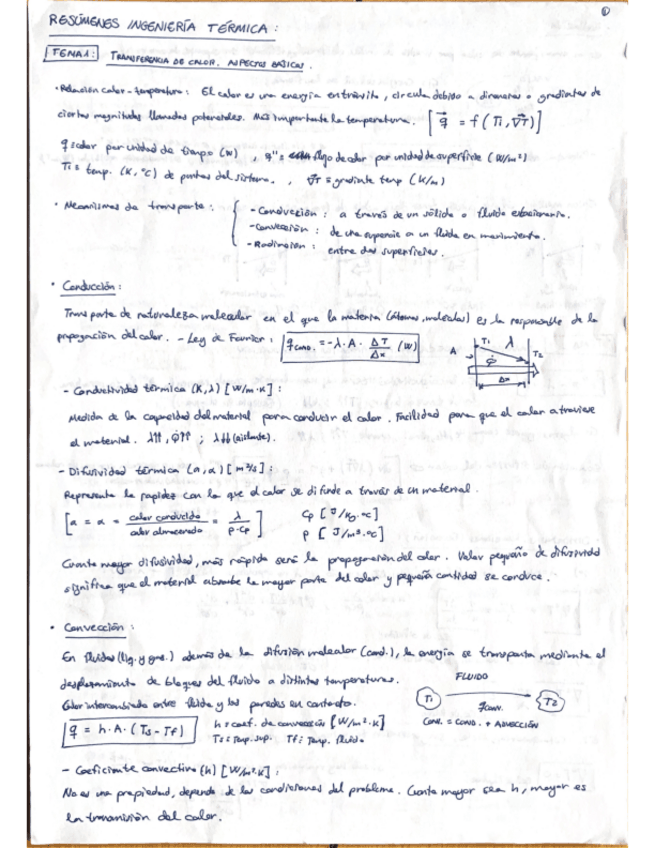 ①
RESÚMENES INGENIERÍA TÉRMICA :
TEMA 1 : TRANSFERENCIA DE CALOR. ASPECTOS BÁSICOS.
• Relación calor - temperatura : El calor es una energía en tránsito, circula debido a diferencias o gradientes de
ciertas magnitudes llamadas potenciales. Más importante la temperatura. [ q⃗ = f ( Ti, ∇⃗T ) ]
q = calor por unidad de tiempo (W) , q'' = flujo de calor por unidad de superficie (W/m²)
Ti = temp. (K, °C) de puntos del sistema. , ∇⃗T = gradiente temp (K/m)
• Mecanismos de transporte : { - Conducción : a través de un sólido o fluido estacionario.
- Convección : de una superficie a un fluido en movimiento.
- Radiación : entre dos superficies.
• Conducción :
Transporte de naturaleza molecular en el que la materia (átomos, moléculas) es la responsable de la
propagación del calor. - Ley de Fourier : q cond. = -λ · A · ΔT/Δx (W)
A T1 λ T2 Q̇ Δx
- Conductividad térmica (K, λ) [W/m·K] :
Medida de la capacidad del material para conducir el calor. Facilidad para que el calor atraviese
el material. λ↑↑, Q̇↑↑ ; λ↓↓ (aislante).
- Difusividad térmica (a, α) [m²/s] :
Representa la rapidez con la que el calor se difunde a través de un material.
[ a = α = calor conducido / calor almacenado = λ / ρ · Cp ] Cp [J/kg·°C]
ρ [J/m³·°C]
Cuanto mayor difusividad, más rápida será la propagación del calor. Valor pequeño de difusividad
significa que el material absorbe la mayor parte del calor y pequeña cantidad se conduce.
• Convección :
En fluidos (líq. y gas.) además de la difusión molecular (cond.), la energía se transporta mediante el
desplazamiento de bloques del fluido a distintas temperaturas.
Calor intercambiado entre fluido y las paredes en contacto.
FLUIDO
T1 → T2
q conv.
CONV. = COND. + ADVECCIÓN
q = h · A · (Ts - Tf) h = coef. de convección [W/m²·K]
Ts = Temp. sup. Tf = Temp. fluido
- Coeficiente convectivo (h) [W/m²·K] :
No es una propiedad, depende de las condiciones del problema. Cuanto mayor sea h, mayor es
la transmisión del calor.